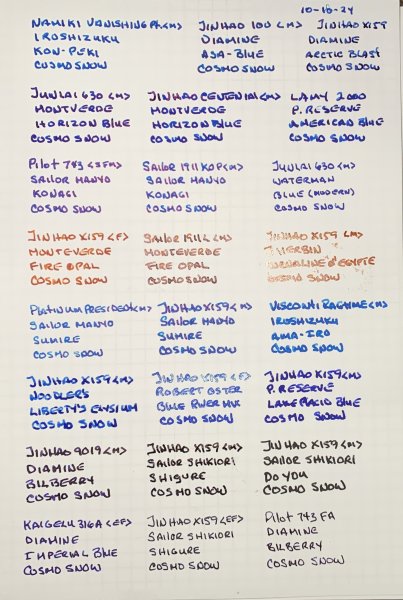 10-18-24
NAMIKI VANISHING PT<M>
IROSHIZUKU
KON-PEKI
COSMO SNOW
JINHAO 100 <M>
DIAMINE
ASA-BLUE
COSMO SNOW
JINHAO X159
DIAMINE
ARCTIC BLAST
COSMO SNOW
JUNLAI 630 <M>
MONTVERDE
HORIZON BLUE
COSMO SNOW
JINHAO CENTENIAL <M>
MONTVERDE
HORIZON BLUE
COSMO SNOW
LAMY 2000
P. RESERVE
AMERICAN BLUE
COSMO SNOW
Pilot 743 <SFM>
SAILOR MANYO
KONAGI
COSMO SNOW
SAILOR 1911 KOP <M>
SAILOR MANYO
KONAGI
COSMO SNOW
JUNLAI 630 <M>
WATERMAN
BLUE (MODERN)
COSMO SNOW
JINHAO X159 <F>
MONTEVERDE
FIRE OPAL
COSMO SNOW
SAILOR 1911L <M>
MONTEVERDE
FIRE OPAL
COSMO SNOW
JINHAO X159 <M>
J HERBIN
D'EGYPTE
COSMO SNOW
PLATINUM PRESIDENT<M>
SAILOR MANYO
SUMIRE
COSMO SNOW
JINHAO X159 <M>
SAILOR MANYO
SUMIRE
COSMO SNOW
VISCONTI RAGTIME <M>
IROSHIZUKU
AMA-IRO
COSMO SNOW
JINHAO X159 <M>
NOODLER'S
LIBERTY'S ELYSIUM
COSMO SNOW
JINHAO X159 <F>
ROBERT OSTER
BLUE RIVER MIX
COSMO SNOW
JINHAO X159 <M>
P. RESERVE
LAKE PLACID BLUE
COSMO SNOW
JINHAO 9019 <M>
DIAMINE
BILBERRY
COSMO SNOW
JINHAO X159 <M>
SAILOR SHIKIORI
SHIGURE
COSMO SNOW
JINHAO X159 <M>
SAILOR SHIKIORI
DO YOU
COSMO SNOW
KAIGELU 316A <EF>
DIAMINE
IMPERIAL BLUE
COSMO SNOW
JINHAO X159 <EF>
SAILOR SHIKIORI
SHIGURE
COSMO SNOW
Pilot 743 FA
DIAMINE
BILBERRY
COSMO SNOW